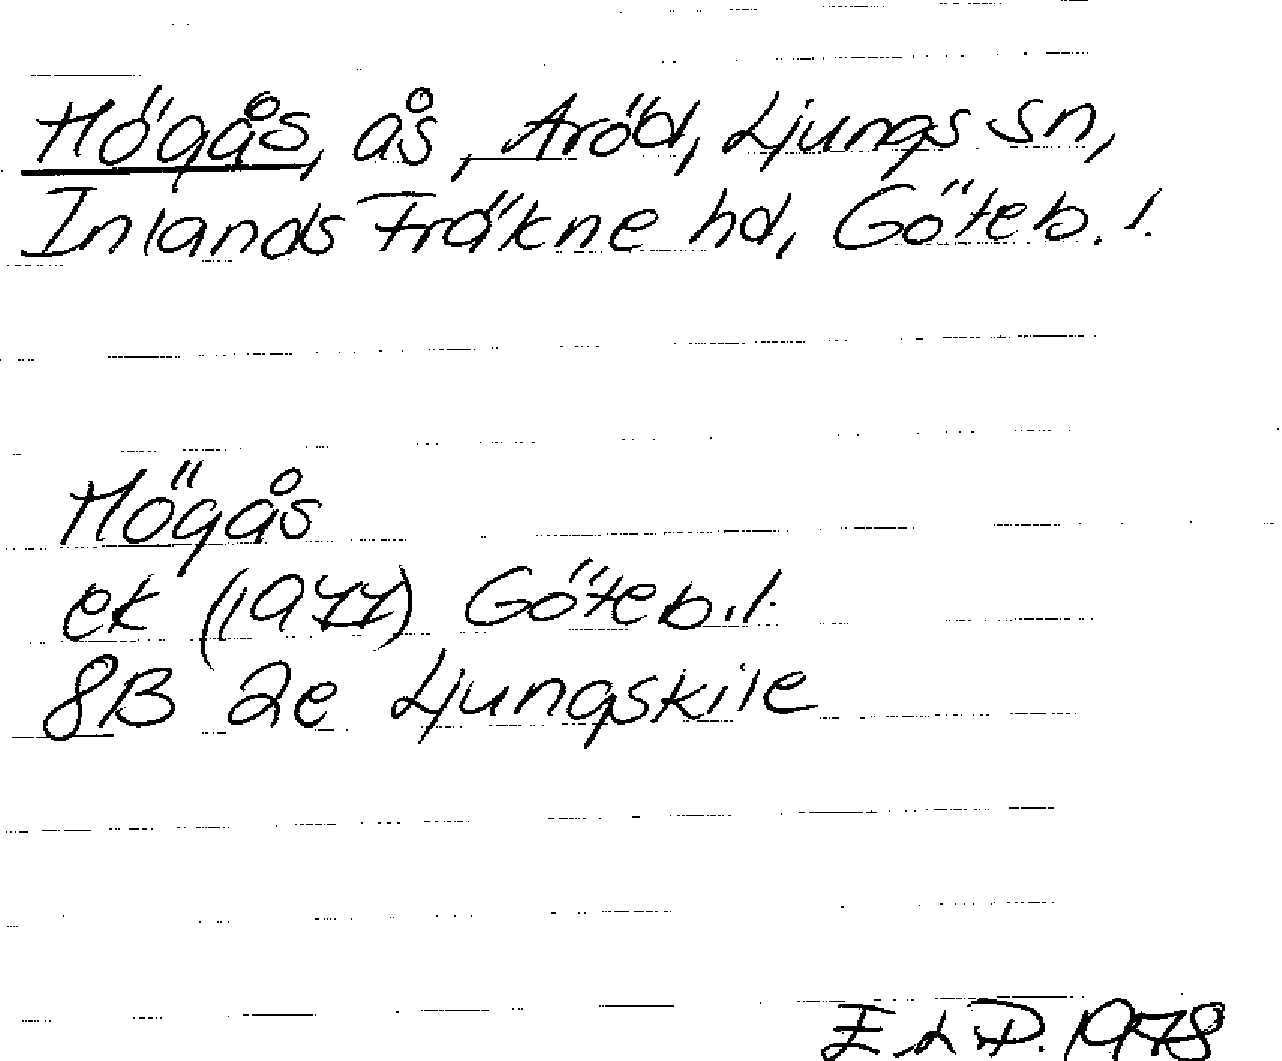 Högås, ås, Aröd, Ljungs sn,
Inlands Fräkne hd, Göteb. l.
Högås
ek (1977) Göteb. l.
8B 2e Ljungskile
E L P. 1978